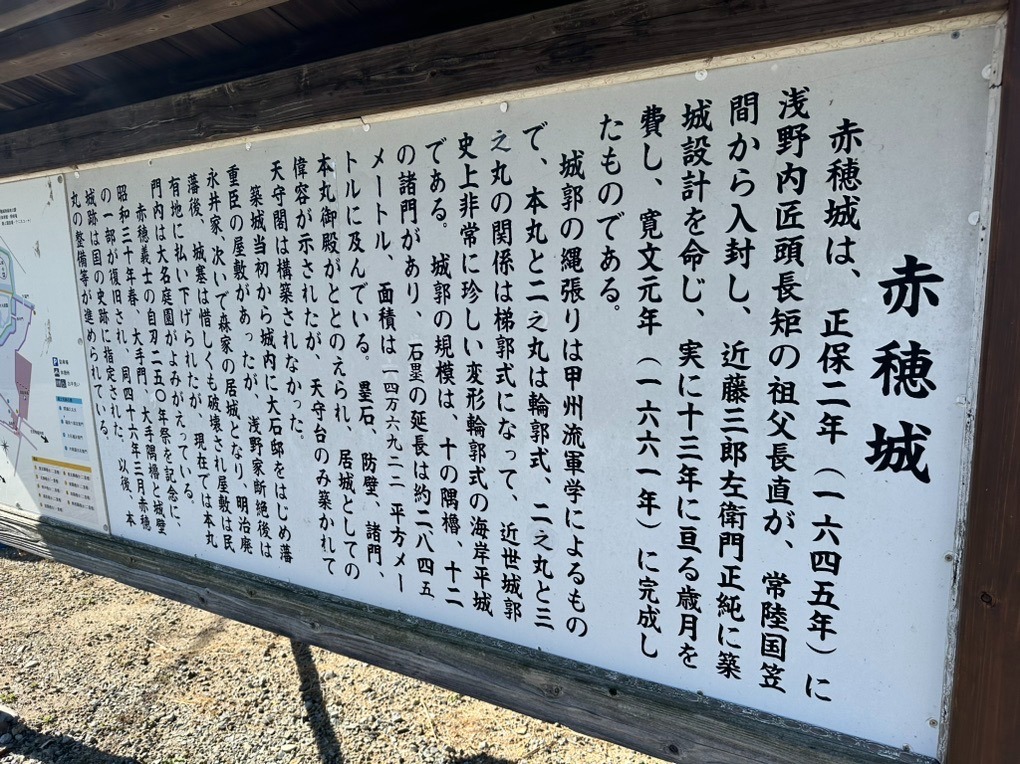 赤穂城
赤穂城は、正保二年（一六四五年）に
浅野内匠頭長矩の祖父長直が、常陸国笠
間から入封し、近藤三郎左衛門正純に築
城設計を命じ、実に十三年に亘る歳月を
費し、寛文元年（一六六一年）に完成し
たものである。
城郭の縄張りは甲州流軍学によるもの
で、本丸と二之丸は輪郭式、二之丸と三
之丸の関係は梯郭式になって、近世城郭
史上非常に珍しい変形輪郭式の海岸平城
である。城郭の規模は、十の隅櫓、十二
の諸門があり、石塁の延長は約二八四五
メートル、面積は一四万六九二二平方メー
トルに及んでいる。塁石、防壁、諸門、
本丸御殿がととのえられ、居城としての
偉容が示されたが、天守台のみ築かれて
天守閣は構築されなかった。
築城当初から城内に大石邸をはじめ藩
重臣の屋敷があったが、浅野家断絶後は
永井家、次いで森家の居城となり、明治廃
藩後、城塞は惜しくも破壊され屋敷は民
有地に払い下げられたが、現在では本丸
門内は大名庭園がよみがえっている。
赤穂義士の自刃二五〇年祭を記念に、
昭和三十年春、大手門、大手隅櫓と城壁
の一部が復旧され、同四十六年三月赤穂
城跡は国の史跡に指定された。以後、本
丸の整備等が進められている。